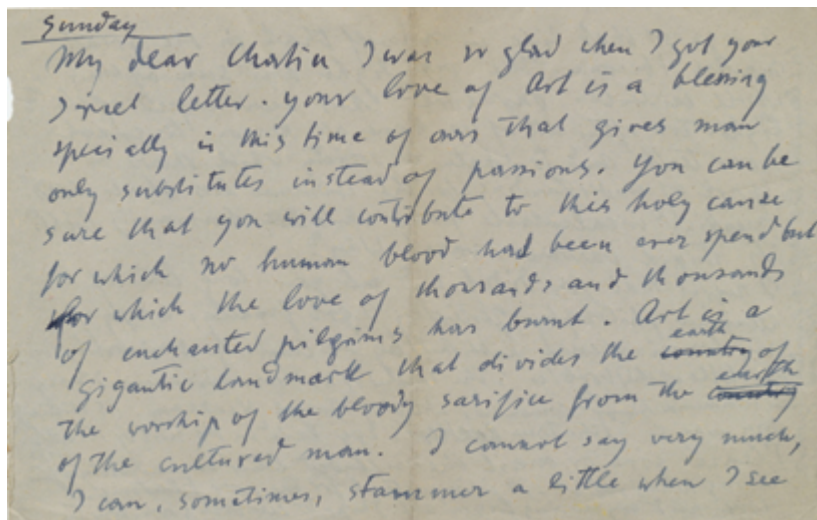 Sunday
My dear Charlie I was so glad when I got your
sweet letter. your love of Art is a blessing
specially in this time of ours that gives man
only substitutes instead of passions. You can be
sure that you will contribute to this holy cause
for which no human blood had been ever spend but
for which the love of thousands and thousands
of enchanted pilgrims has burnt. Art is a
gigantic landmark that divides the earth of
the worship of the bloody sarifice from the earth
of the cultured man. I cannot say very much,
I can, sometimes, stammer a little when I see